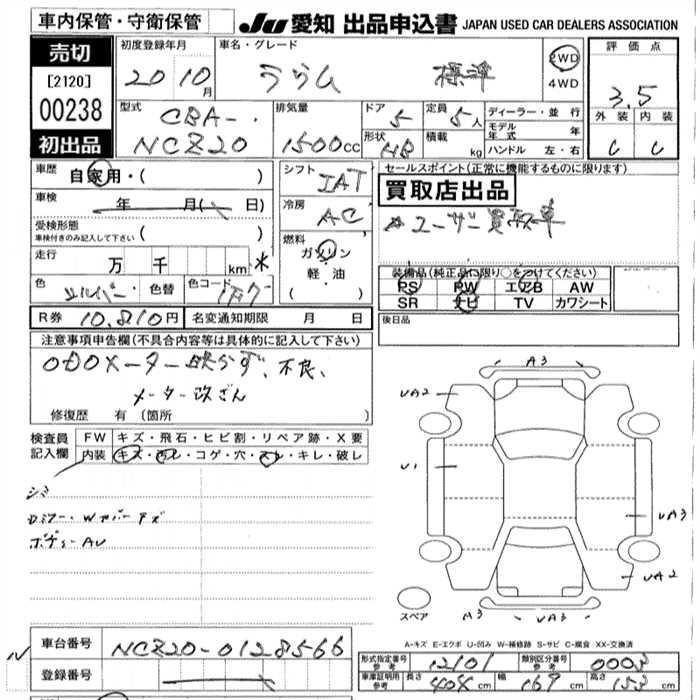 車内保管・守衛保管
JU 愛知 出品申込書 JAPAN USED CAR DEALERS ASSOCIATION
売切
[2120]
00238
初出品
初度登録年月
20 10月
車名・グレード
ラウム 標準
2WD
4WD
評価点
3.5
外装 内装
C C
型式
CBA-
NCZ20
排気量
1500cc
ドア 5
定員 5人
形状 HB
積載 kg
ディーラー・並行
モデル年式 年
ハンドル 左・右
車歴
自家用・( )
車検 年 月( 日)
受検形態
車検付きのみ記入して下さい ( )
走行
万 千 km *
色 シルバー 色替 色コード 1F7
シフト
IAT
冷房
AC
燃料
ガソリン
軽・油
( )
セールスポイント(正常に機能するものに限ります)
買取店出品
☆ユーザー買取車
装備品(純正品に限り○をつけてください)
PS PW エアB AW
SR ナビ TV カワシート
R券 10,810円 名変通知期限 月 日
後日品
注意事項申告欄(不具合内容等は具体的に記入して下さい)
ODOメーター映らず、不良、
メーター改ざん
修復歴 有 (箇所 )
検査員
記入欄
FW キズ・飛石・ヒビ割・リペア跡・X要
内装 キズ・汚レ・コゲ・穴・スレ・キレ・破レ
シミ
ボディーAU
A3
UA2
U1
UA3
UA2
A3
UA3
スペア
A-キズ E-エクボ U-凹み W-補修跡 S-サビ C-腐食 XX-交換済
車台番号 NCZ20-0128566
登録番号
形式指定番号
参考
12101
類別区分番号
参考
0003
車庫証明用
参考
長さ 404cm 幅 169cm 高さ 153cm